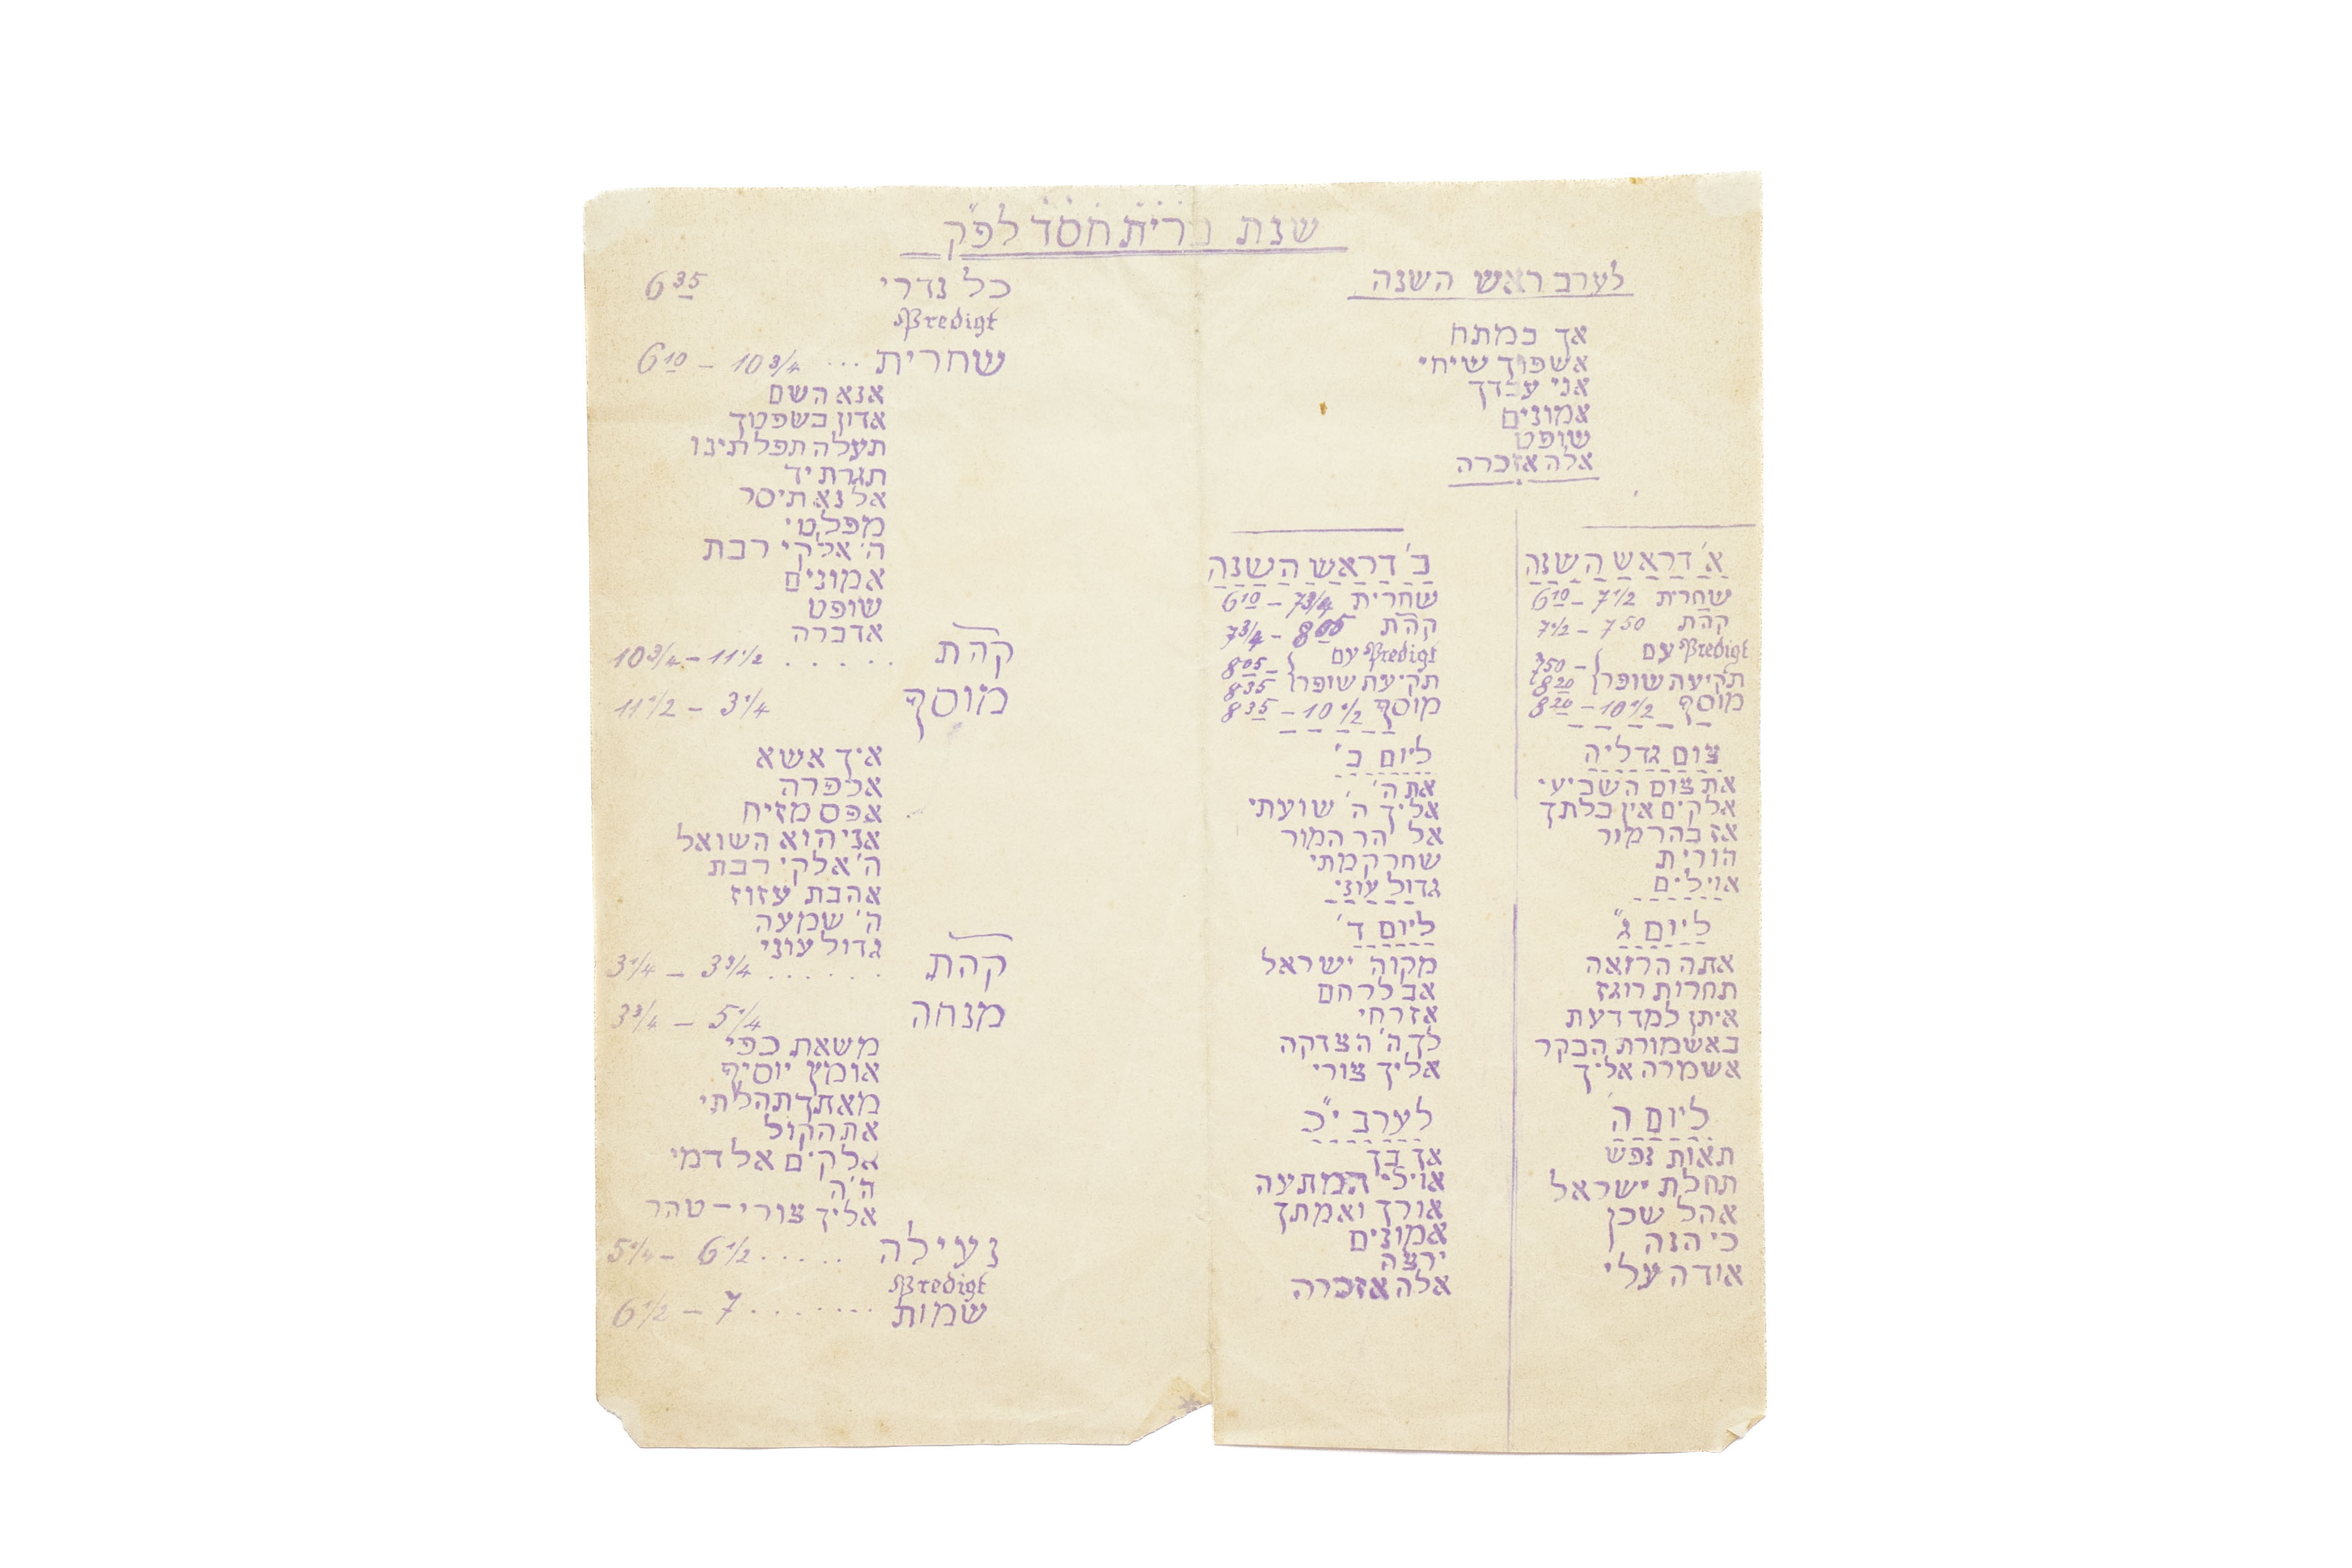 שנת ברית חסד לפ״ק
לערב ראש השנה
אך במתח
אשפוך שיחי
אני עבדך
אמונים
שופט
אלה אזכרה
א׳ דראש השנה
שחרית 6 10 – 7 1/2
קהת 7 1/2 – 7 50
Predigt עם
תקיעת שופר } 7 50 – 8 20
מוסף 8 20 – 10 1/2
צום גדליה
את צום השביעי
אלקים אין בלתך
אז בהר מור
הורית
אוילים
ליום ג״
אתה הרואה
תחרות רוגז
איתן למד דעת
באשמורת הבקר
אשמרה אליך
ליום ה׳
תאות נפש
תחלת ישראל
אהל שכן
כי הנה
אודה עלי
ב׳ דראש השנה
שחרית 6 10 – 7 3/4
קהת 7 3/4 – 8 05
Predigt עם
תקיעת שופר } 8 05 – 8 35
מוסף 8 35 – 10 1/2
ליום ב׳
את ה׳
אליך ה׳ שועתי
אל הר המור
שחר קמתי
גדול עוני
ליום ד׳
מקוה ישראל
אב לרחם
אזרחי
לך ה׳ הצדקה
אליך צורי
לערב י״כ
אך בך
אוילי המתעה
אורך ואמתך
אמונים
ירצה
אלה אזכרה
כל נדרי 6 35
Predigt
שחרית ... 6 10 – 10 3/4
אנא השם
אדון בשפטך
תעלה תפלתינו
תגרת יד
אל נא תיסר
מפלטי
ה׳ אלקי רבת
אמונים
שופט
אדברה
קהת ..... 10 3/4 – 11 1/2
מוסף 11 1/2 – 3 1/4
איך אשא
אכפרה
אפס מזיח
אני הוא השואל
ה׳ אלקי רבת
אהבת עזוז
ה׳ שמעה
גדול עוני
קהת ...... 3 1/4 – 3 3/4
מנחה 3 3/4 – 5 1/4
משאת כפי
אומץ יוסיף
מאתך תהלתי
את הקול
אלקים אל דמי
ה׳ ה׳
אליך צורי – טהר
נעילה ..... 5 1/4 – 6 1/2
Predigt
שמות ....... 6 1/2 – 7